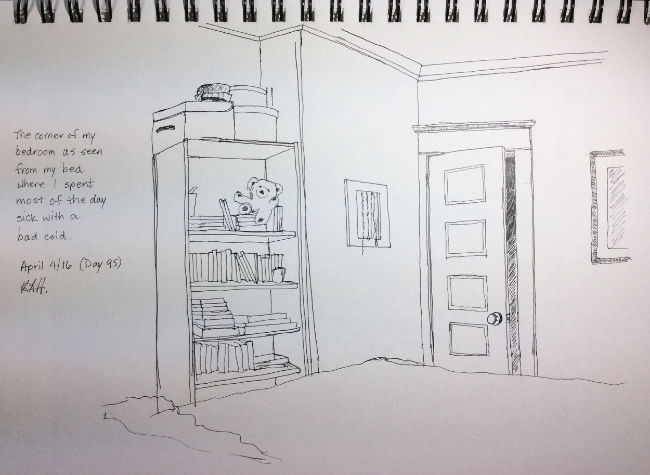 The corner of my
bedroom as seen
from my bed
where I spent
most of the day
sick with a
bad cold.
April 4/16 (Day 95)
KAH.